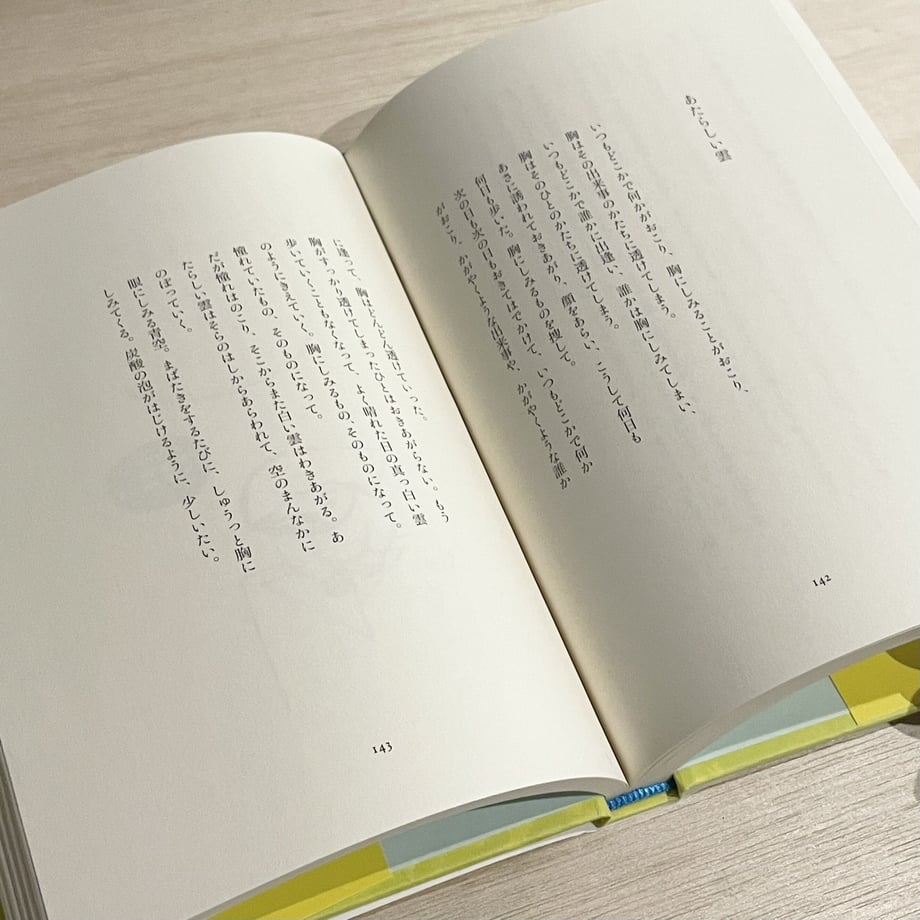 あたらしい雲
いつもどこかで何かがおこり、胸にしみることがおこり、
胸はその出来事のかたちに透けてしまう。
いつもどこかで誰かに出逢い、誰かは胸にしみてしまい、
胸はそのひとのかたちに透けてしまう。
あさに誘われておきあがり、顔をあらい、こうして何日も
何日も歩いた。胸にしみるものを捜して。
次の日も次の日もおきてはでかけて、いつもどこかで何か
がおこり、かがやくような出来事や、かがやくような誰か
142
に逢って、胸はどんどん透けていった。
胸がすっかり透けてしまったひとはおきあがらない。もう
歩いていくこともなくなって、よく晴れた日の真っ白い雲
のようにきえていく。胸にしみるもの、そのものになって。
憧れていたもの、そのものになって。
だが憧れはのこり、そこからまた白い雲はわきあがる。あ
たらしい雲はそらのはしからあらわれて、空のまんなかに
のぼっていく。
眼にしみる青空。まばたきをするたびに、しゅうっと胸に
しみてくる。炭酸の泡がはじけるように、少しいたい。
143